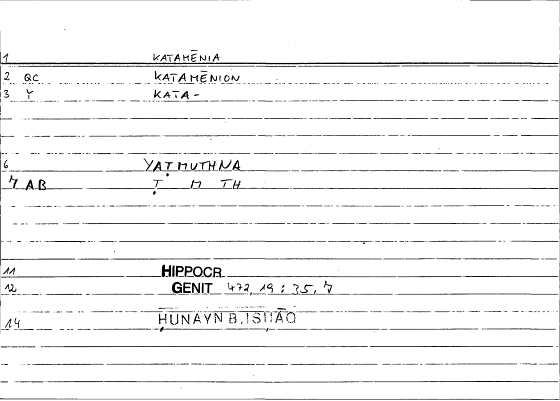 1 KATAMĒNIA
2 QC KATAMĒNION
3 Y KATA-
6 YAṬMUTHNA
7 AB Ṭ M TH
11 HIPPOCR
12 GENIT 472,19 : 35,7
14 ḤUNAYN B. ISḤĀQ